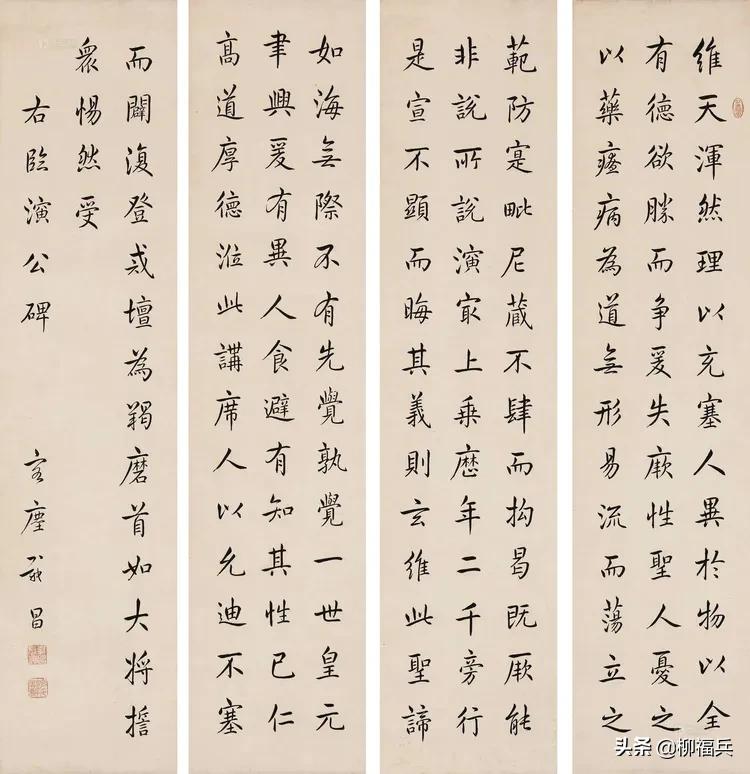 維天渾然理以充塞人異於物以全
有德欲勝而爭爰失厥性聖人憂之
以藥瘗病為道無形易流而蕩立之
範防寔毗尼蔵不肆而拘曷既厥能
非說所說演冣上乗歷年二千旁行
是宣不顯而晦其義則玄維此聖諦
如海無際不有先覺孰覺一世皇元
聿興爰有異人食避有知其性已仁
高道厚德涖此講席人以允迪不塞
而闢復登戒壇為羯磨首如大將誓
眾惕然受
右臨演公碑
嚴昌
头条 @柳福兵